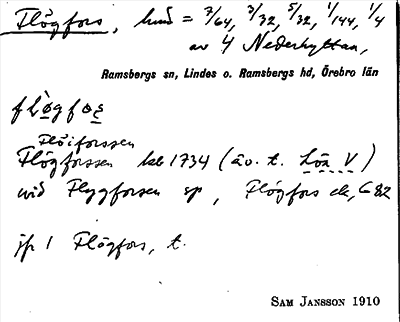 Flögfors, hmd = 7/64, 3/32, 5/32, 1/144, 1/4
av 4 Nederhyttan,
Ramsbergs sn, Lindes o. Ramsbergs hd, Örebro län
flø̀gfoṣ
Flöiforssen
Flögforssen kb 1734 (äv. t. Lön V)
wid Flygforsen sp, Flögfors ck, G 82
jfr 1 Flögfors, t.
SAM JANSSON 1910